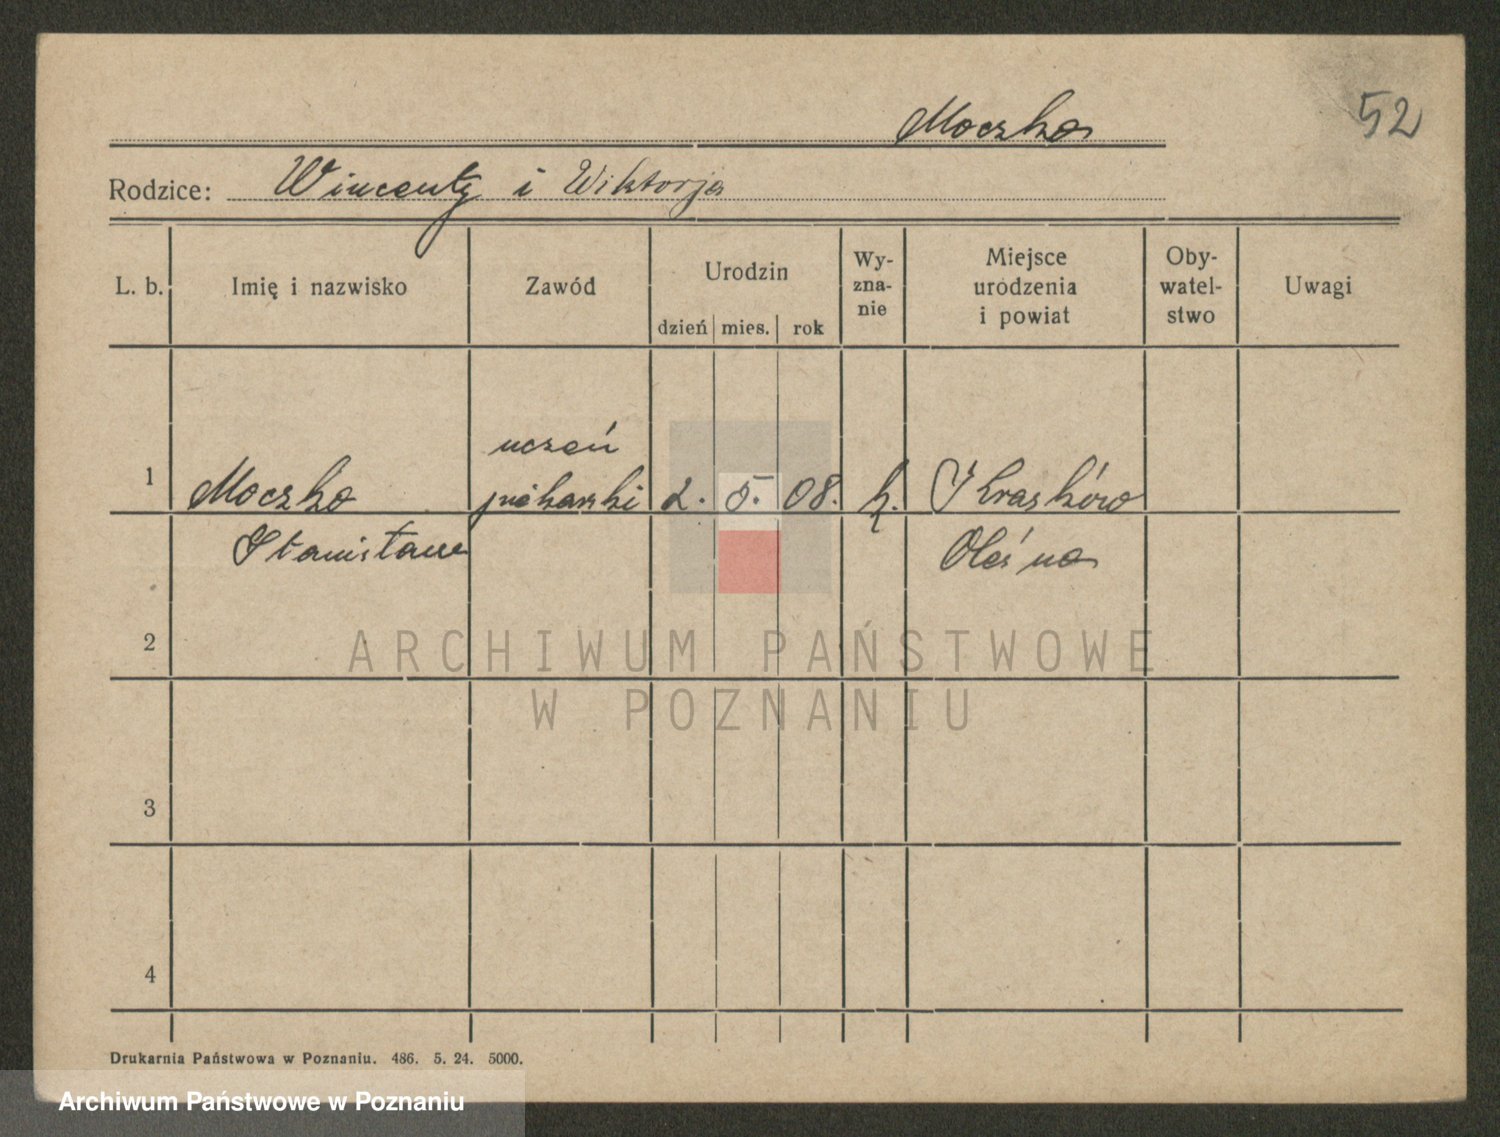 52
Moczko
Rodzice: Wincenty i Wiktorja
L. b. Imię i nazwisko Zawód Urodzin dzień mies. rok Wy-zna-nie Miejsce urodzenia i powiat Oby-watel-stwo Uwagi
uczeń
1 Moczko piekarski 2. 5. 08. k.
Stanisław Oleśno
2
3
4
ARCHIWUM PAŃSTWOWE
W POZNANIU
Drukarnia Państwowa w Poznaniu. 486. 5. 24. 5000.
Archiwum Państwowe w Poznaniu